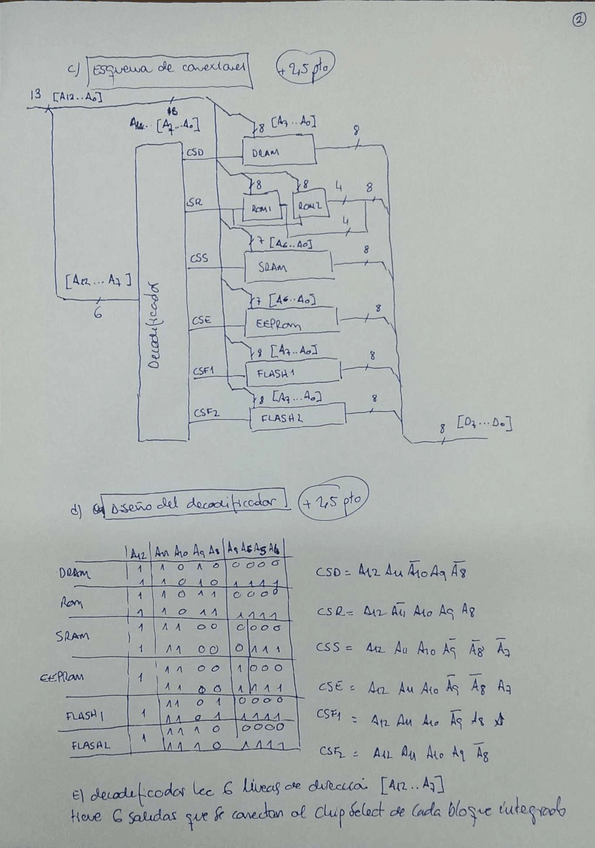 2
c) Esquema de conexiones +2,5 pto
13 [A12...A0]
8
[A7...A0]
8 [A7...A0]
8
CSD
DRAM
8
8
4
8
SR
ROM1
ROM2
4
7 [A6...A0]
CSS
SRAM
8
[A12...A7]
6
Decodificador
7 [A6...A0]
CSE
EEPROM
8
8 [A7...A0]
CSF1
FLASH1
8
8 [A7...A0]
CSF2
FLASH2
8
8 [D7...D0]
d) Diseño del decodificador +2,5 pto
A12 A11 A10 A9 A8 A7 A6 A5 A4
DRAM 1 1 0 1 0 0 0 0 0
1 1 0 1 0 1 1 1 1
ROM 1 0 1 1 0 0 0 0
1 0 1 1 1 1 1 1
SRAM 1 1 1 0 0 0 0 0 0
1 1 1 0 0 0 1 1 1
EEPROM 1 1 1 0 0 1 0 0 0
1 1 0 0 1 1 1 1
FLASH1 1 1 1 0 1 0 0 0 0
1 1 0 1 1 1 1 1
FLASH2 1 1 1 1 0 0 0 0 0
1 1 1 0 1 1 1 1
CSD = A12 A11 A̅10 A9 A̅8
CSR = A12 A̅11 A10 A9 A8
CSS = A12 A11 A10 A̅9 A̅8 A̅7
CSE = A12 A11 A10 A̅9 A̅8 A7
CSF1 = A12 A11 A10 A̅9 A8
CSF2 = A12 A11 A10 A9 A̅8
El decodificador lee 6 líneas de dirección [A12...A7]
tiene 6 salidas que se conectan al Chip Select de cada bloque integrado